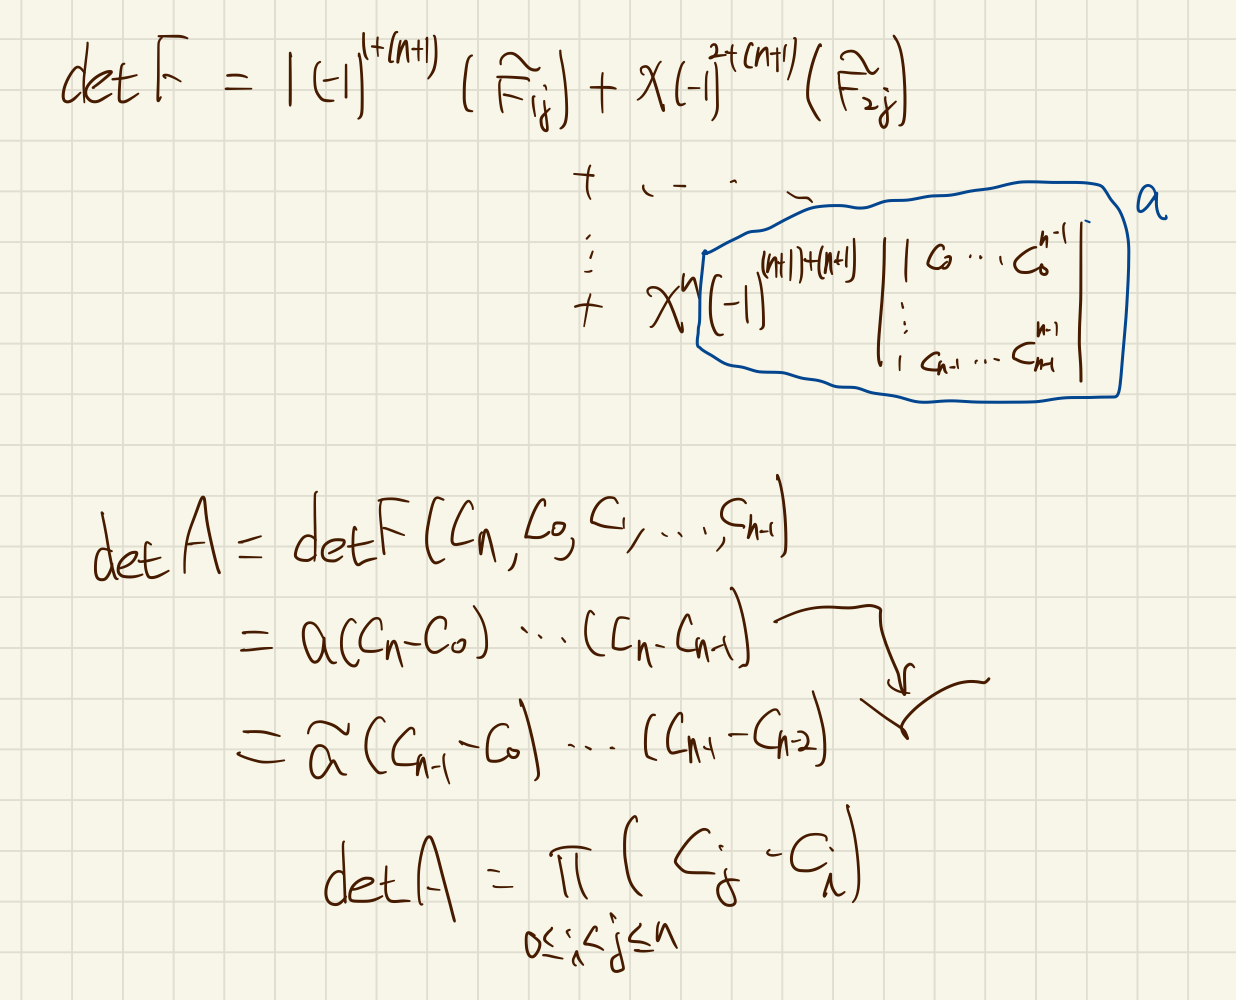 det F = 1 (-1)^{1+(n+1)} (\widetilde{F}_{1j}) + x(-1)^{2+(n+1)} (\widetilde{F}_{2j})
+ . - . ~
⋮
+ x^n (-1)^{(n+1)+(n+1)} | 1 c_0 ⋯ c_0^{n-1} ; ⋮ ; 1 c_{n-1} ⋯ c_{n-1}^{n-1} | a
det A = det F(c_n, c_0, c_1, ..., c_{n-1})
= a(c_n - c_0) ⋯ (c_n - c_{n-1})
= \widetilde{a} (c_{n-1} - c_0) ⋯ (c_{n-1} - c_{n-2})
det A = π (c_j - c_i)
0≤i<j≤n